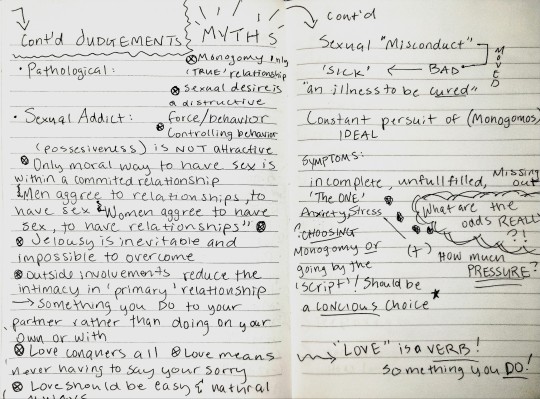 Cont'd JUDGEMENTS
MYTHS
• Pathological:
⊗ Monogomy only
'TRUE' relationship
⊗ sexual desire is
a distructive
• Sexual Addict: force/behavior
⊗ Controlling behavior
(possesiveness) is NOT attractive
⊗ Only moral way to have sex is
within a commited relationship
{Men aggree to relationships, to
have sex & Women aggree to have
sex, to have relationships" ⊗
⊗ Jelousy is inevitable and
impossible to overcome
⊗ outside involvements reduce the
intimacy in 'primary' relationship
→ Something you DO to your
partner rather than doing on your
own or with
⊗ Love conquers all ⊗ Love means
never having to say your sorry
⊗ Love should be easy & natural
ALWAYS
cont'd
Sexual "Misconduct"
MOVED
'SICK' ← BAD
"an illness to be cured"
Constant persuit of (Monogomos)
IDEAL
SYMPTOMS:
incomplete, unfullfilled, Missing out
'The ONE'
Anxiety, Stress
CHOOSING
Monogomy or
going by the
'script'! Should be
a CONCIOUS Choice ★
What are the
odds REALLY
?!
(+) HOW much
PRESSURE?
"LOVE" is a VERB!
something you DO!